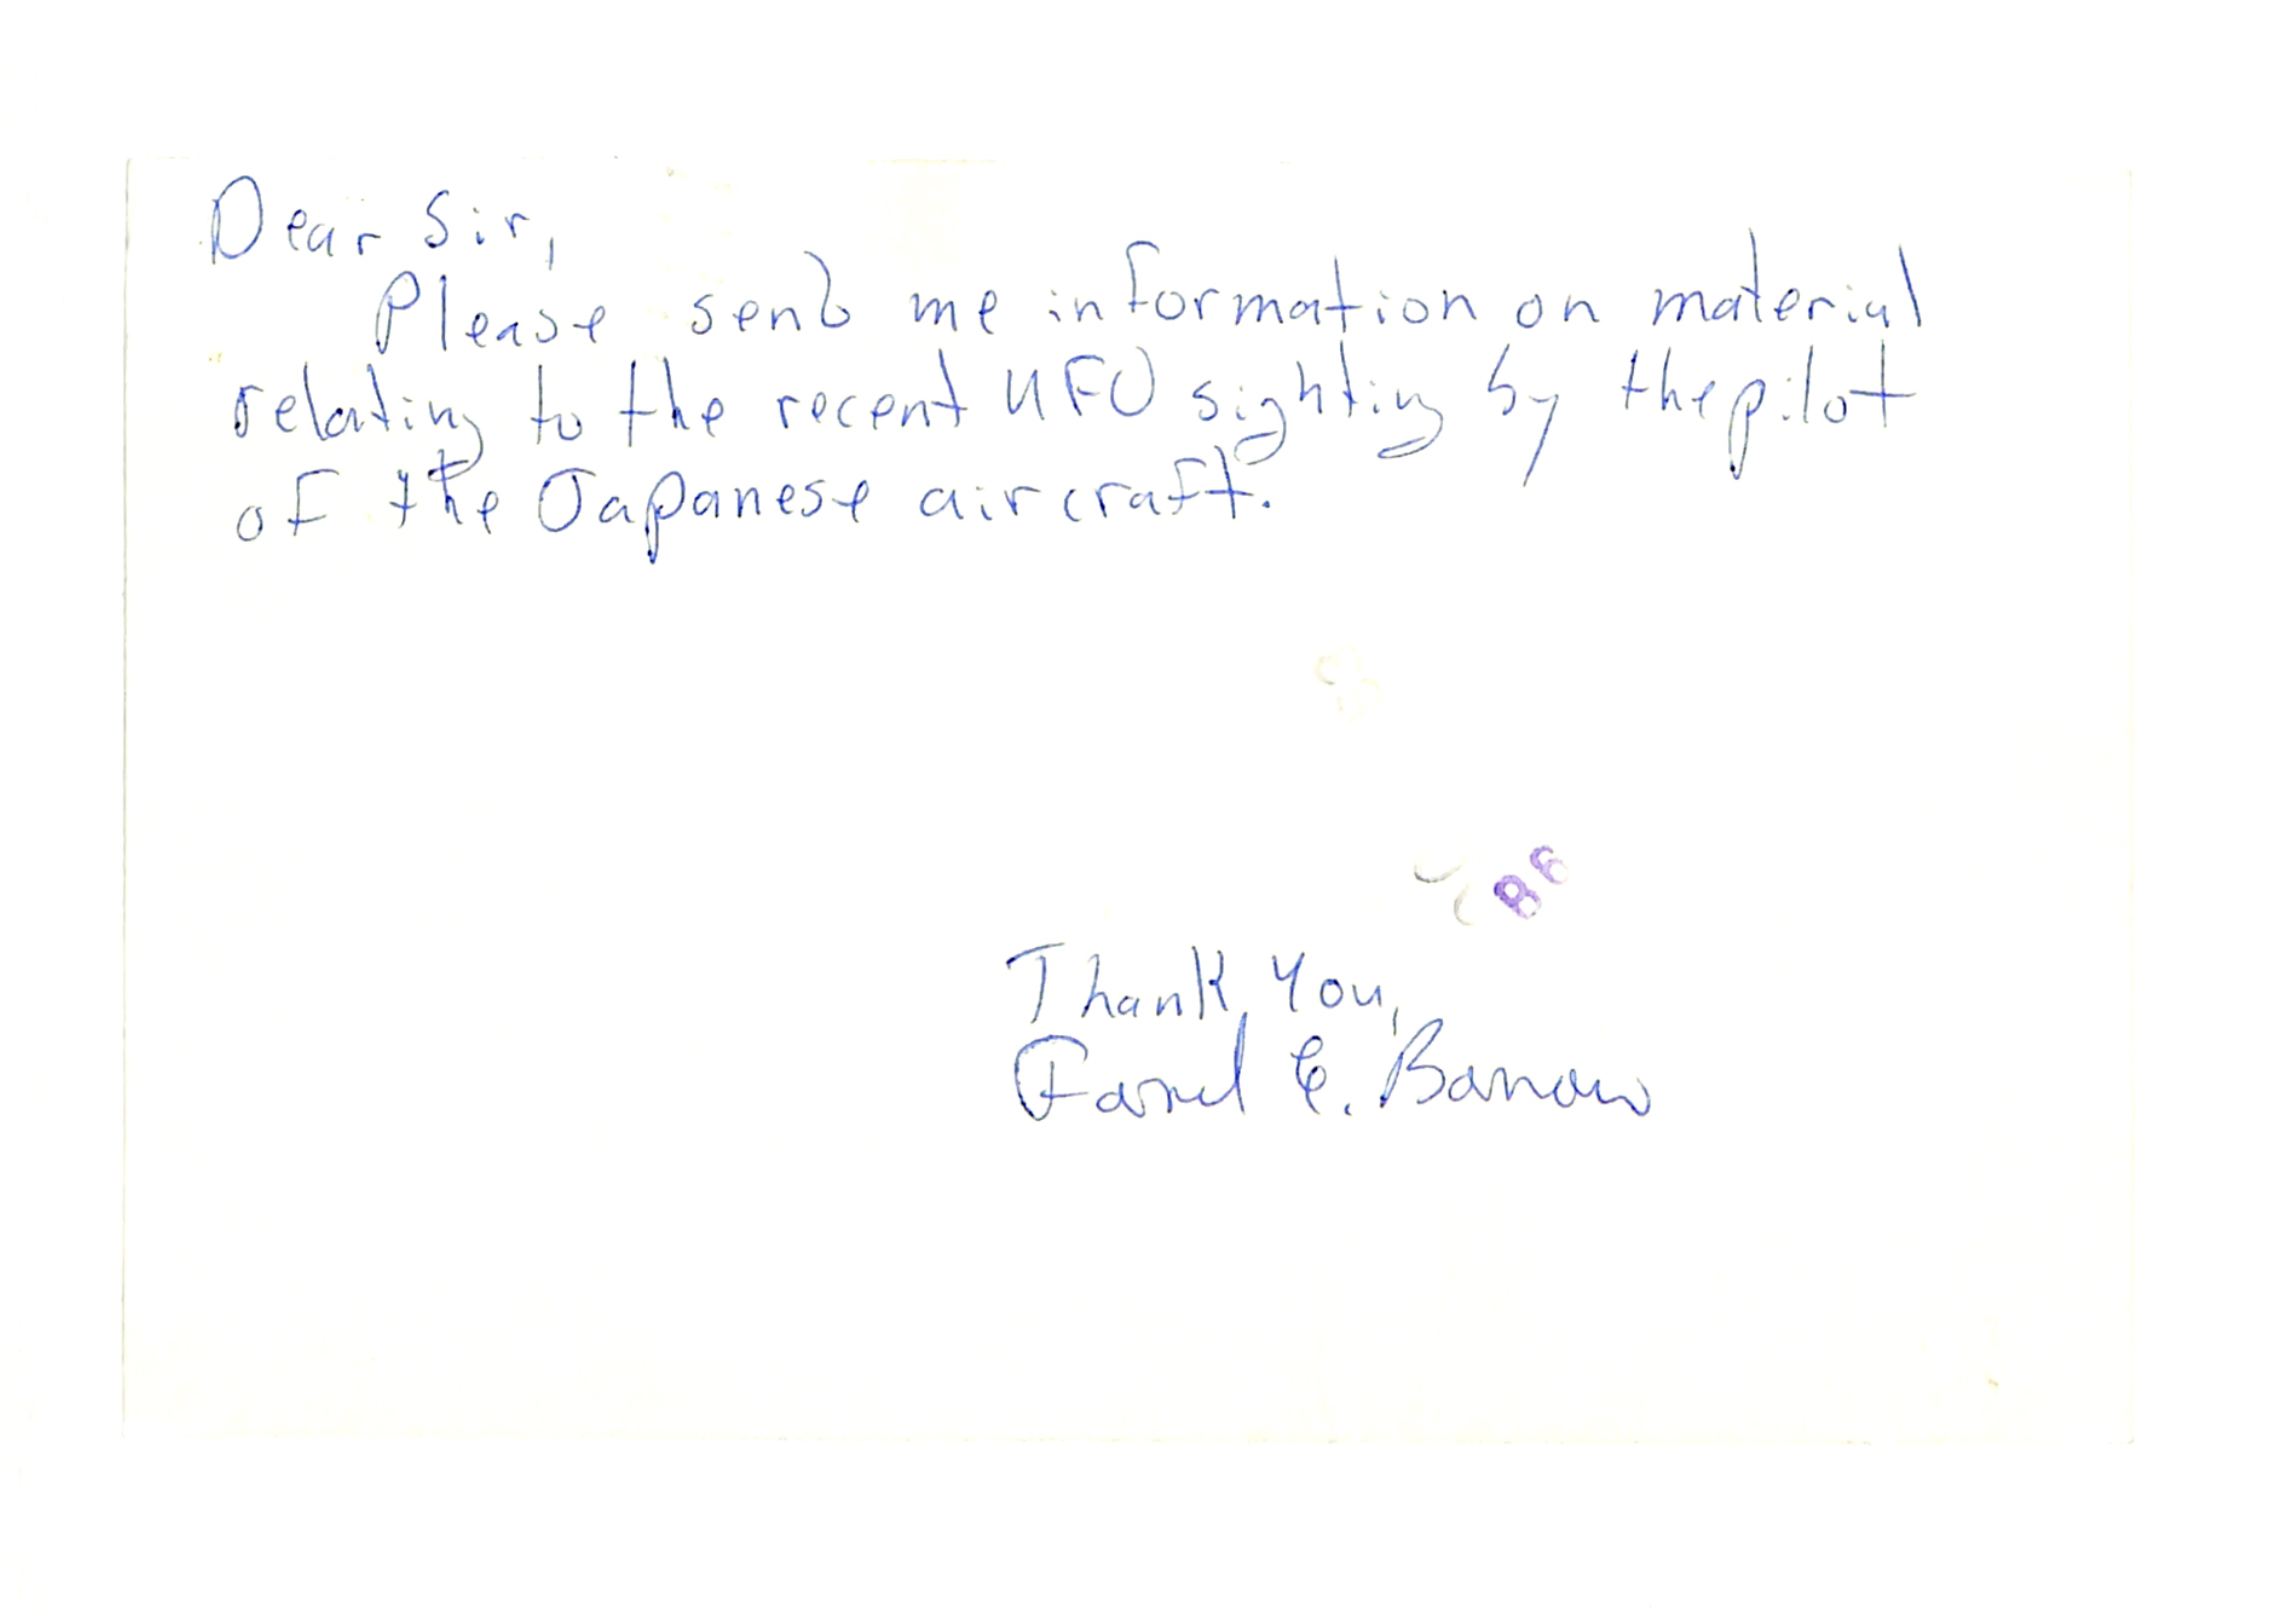 Dear Sir,
Please send me information on material
relating to the recent UFO sighting by the pilot
of the Japanese aircraft.
B6
Thank You,
E. Barrow